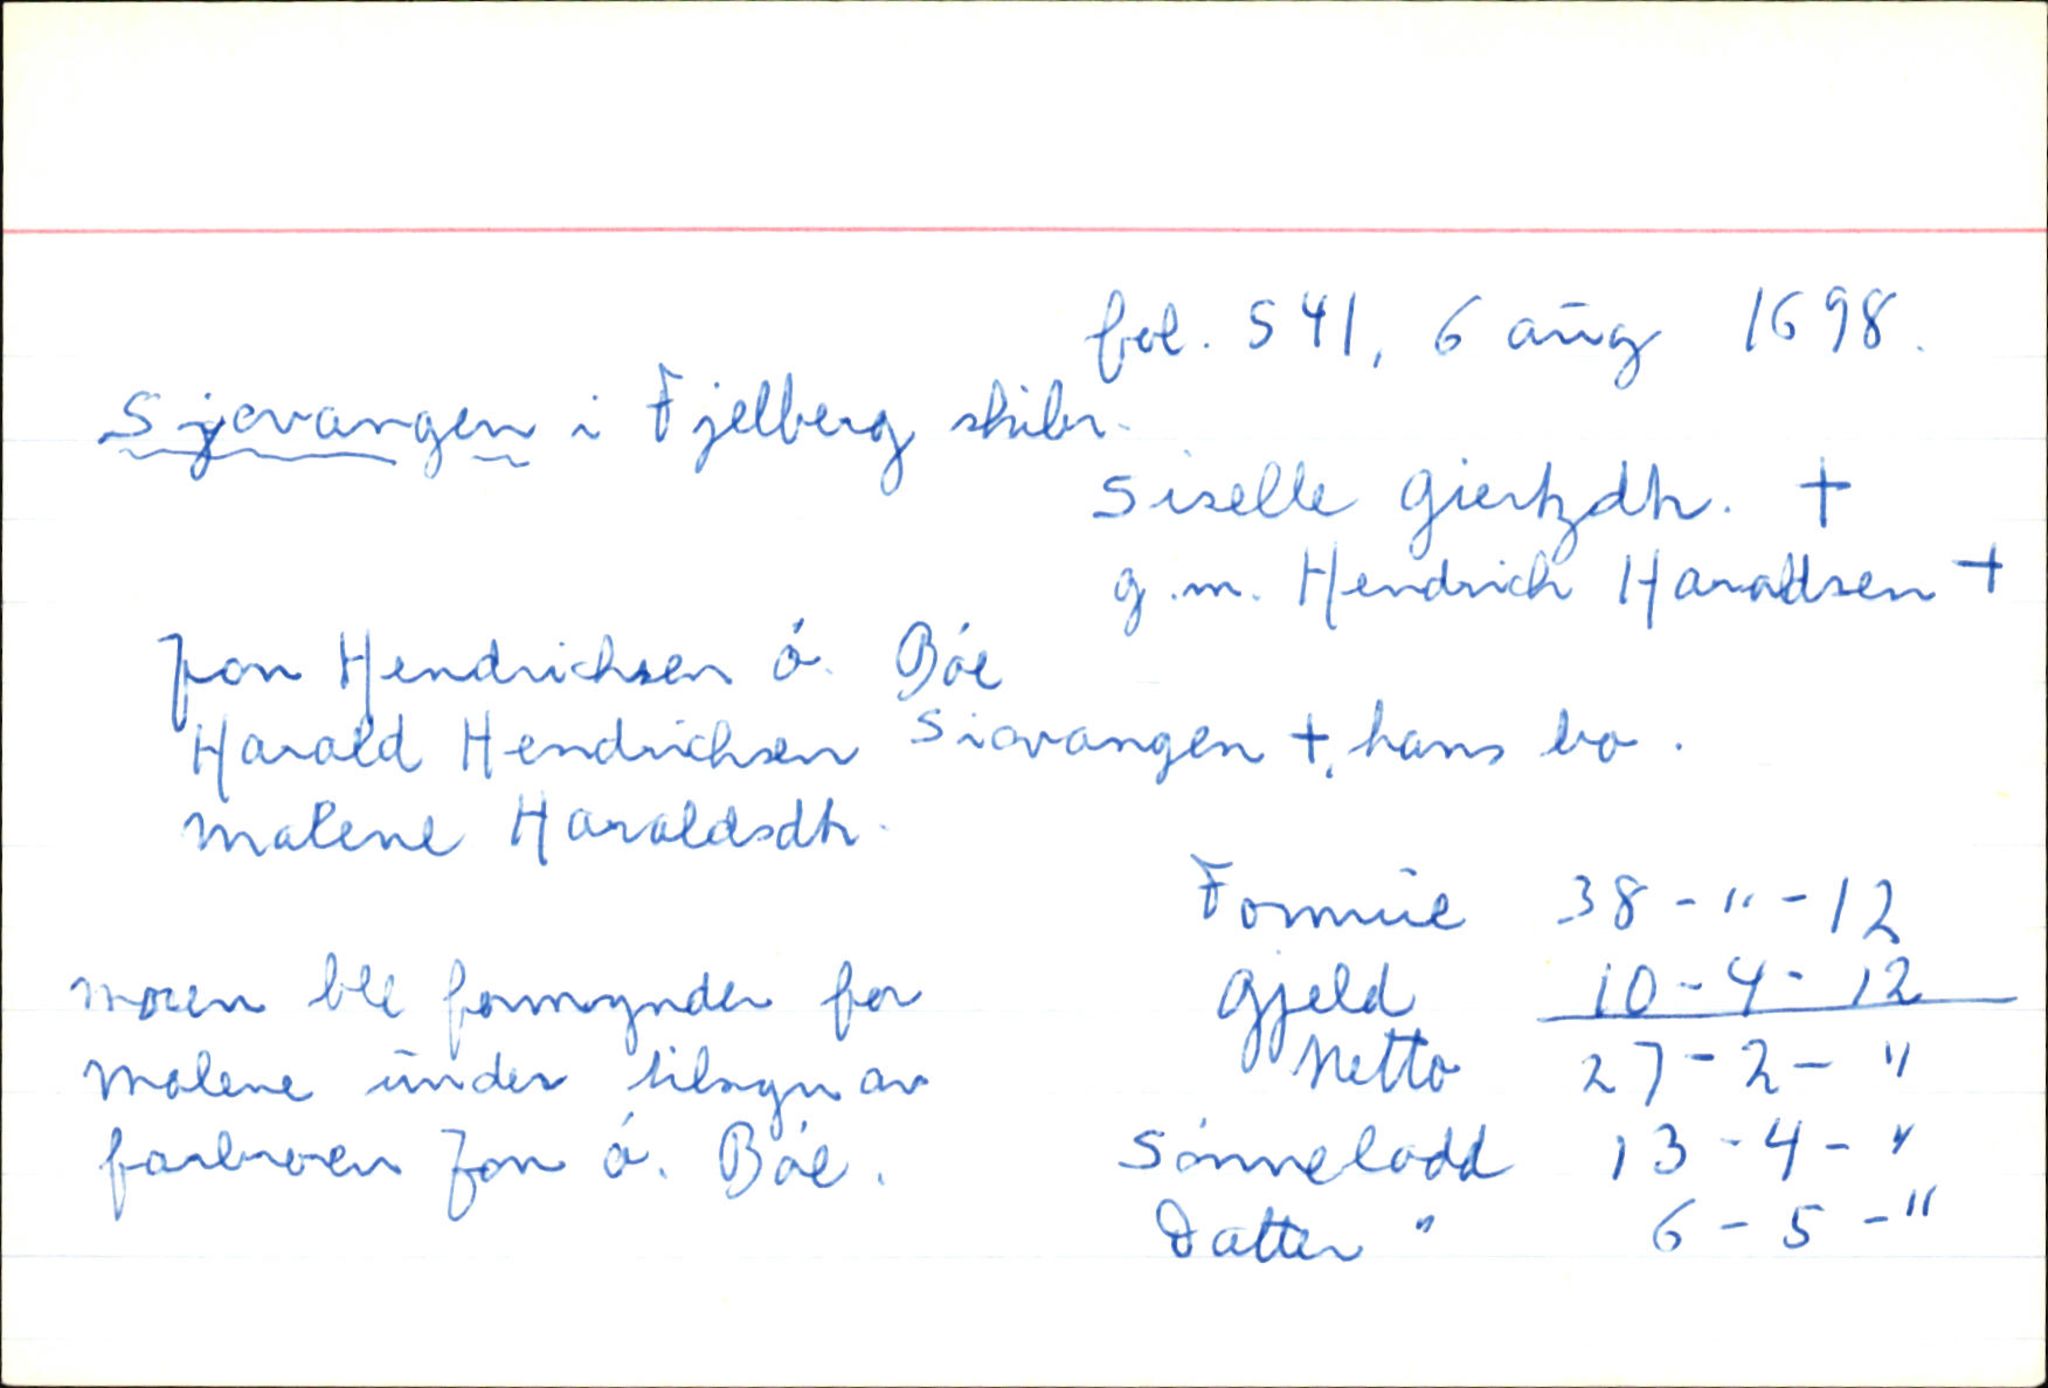 fol. 541, 6 aug 1698.
Sjovangen i Fjelberg skibr.
Siselle Giertzdtr. +
g.m. Hendrich Haraldsen +
Jon Hendrichsen ó. Bóe
Harald Hendrichsen Siovangen +, hans bo.
Malene Haraldsdtr.
Formue 38 - " - 12
Moren ble formynder for Gjeld 10 - 4 - 12
Malene under tilsyn av Netto 27 - 2 - "
farbroren Jon ó. Bóe. Sónnelodd 13 - 4 - "
Datter " 6 - 5 - "